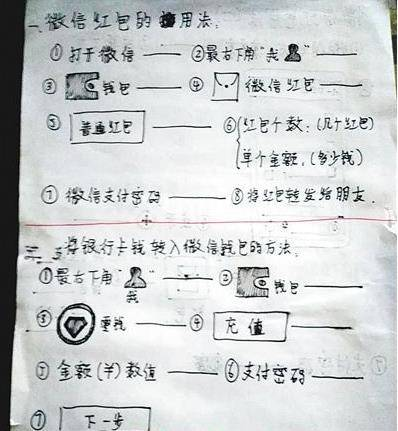 一、微信红包的用法:
①打开微信——②最右下角"我"——
③钱包——④微信红包——
⑤普通红包——⑥红包个数:(几个红包)
单个金额:(多少钱)
⑦微信支付密码——⑧将红包转发给朋友.
二、将银行卡钱转入微信钱包的方法.
①最右下角"我"——②钱包——
③零钱——④充值——
⑤金额(¥)数值——⑥支付密码——
⑦下一步